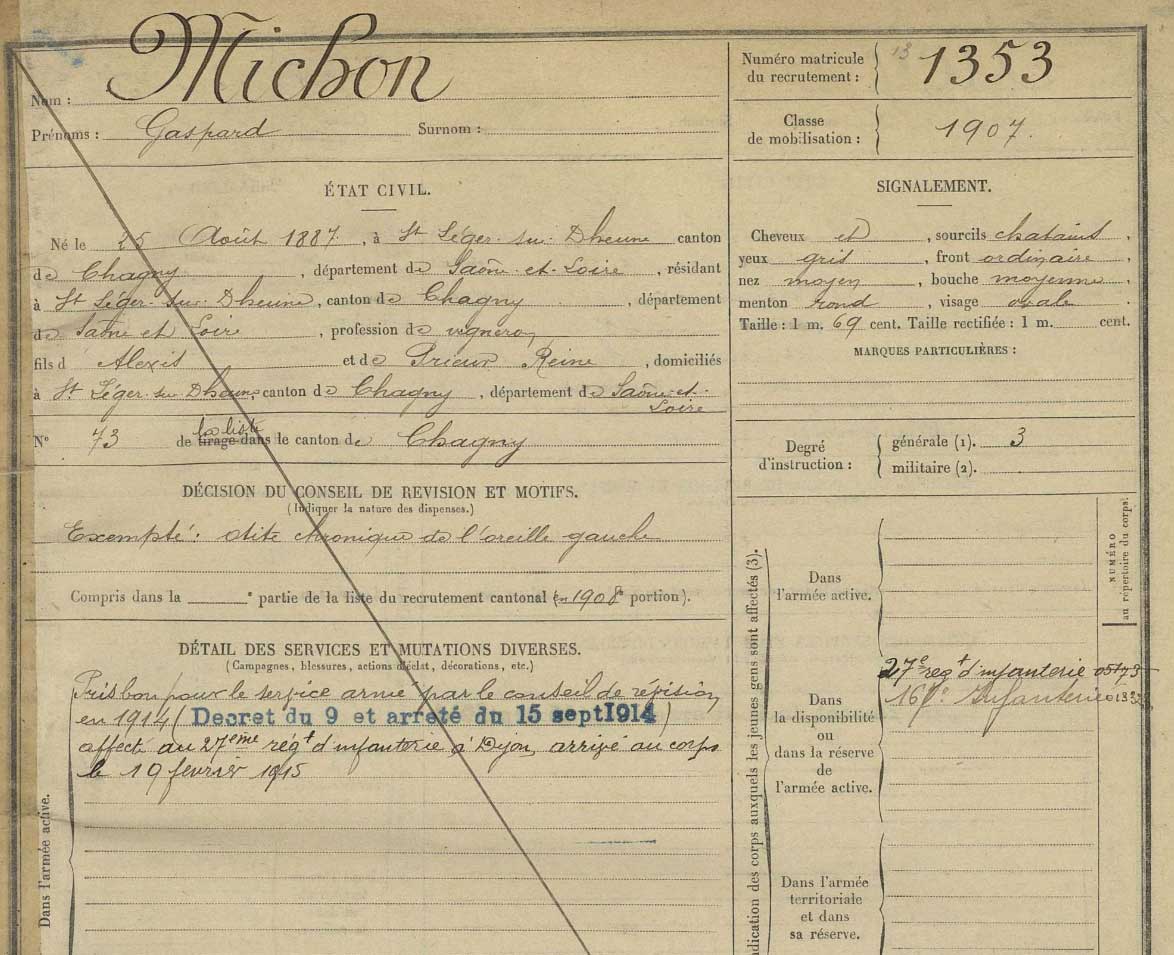 Nom : Michon
Prénoms : Gaspard Surnom :
ÉTAT CIVIL.
Né le 25 Août 1887, à St Léger-sur-Dheune canton
de Chagny, département de Saône-et-Loire, résidant
à St Léger-sur-Dheune, canton de Chagny, département
de Saône et Loire, profession de vigneron
fils d Alexis et de Prieur Reine, domiciliés
à St Léger-sur-Dheune, canton de Chagny, département de Saône-et-
Loire
la liste
N° 73 de tirage dans le canton de Chagny
DÉCISION DU CONSEIL DE REVISION ET MOTIFS.
(Indiquer la nature des dispenses.)
Exempté : otite chronique de l'oreille gauche
Compris dans la e partie de la liste du recrutement cantonal (en 1908 portion).
DÉTAIL DES SERVICES ET MUTATIONS DIVERSES.
(Campagnes, blessures, actions d'éclat, décorations, etc.)
Pris bon pour le service armé par le conseil de révision
en 1914 (Decret du 9 et arreté du 15 sept 1914)
affecté au 27ème régt d'infanterie à Dijon, arrivé au corps
le 19 février 1915
Dans l'armée active.
Numéro matricule
du recrutement : 13 1353
Classe
de mobilisation : 1907.
SIGNALEMENT.
Cheveux et, sourcils chatains,
yeux gris, front ordinaire,
nez moyen, bouche moyenne,
menton rond, visage ovale.
Taille : 1 m. 69 cent. Taille rectifiée : 1 m. cent.
MARQUES PARTICULIÈRES :
Degré
d'instruction :
générale (1). 3
militaire (2).
NUMÉRO
au répertoire du corps.
Indication des corps auxquels les jeunes gens sont affectés (3).
Dans
l'armée active.
27e regt d'infanterie
16 Infanterie
Dans
la disponibilité
ou
dans la réserve
de
l'armée active.
Dans l'armée
territoriale
et dans
sa réserve.